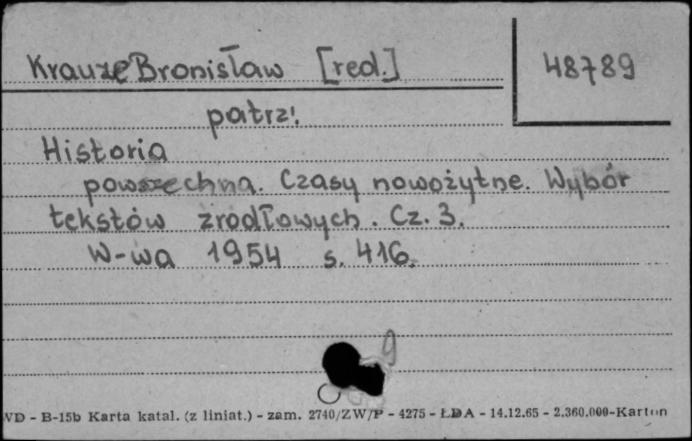 Krauze Bronisław [red.] 48789
patrz:
Historia
powszechna. Czasy nowożytne. Wybór
tekstów zrodłowych. Cz. 3.
W-wa 1954 s. 416.
9
WD - B-15b Karta katal. (z liniat.) - zam. 2740/ZW/P - 4275 - ŁDA - 14.12.65 - 2.360.000-Karton